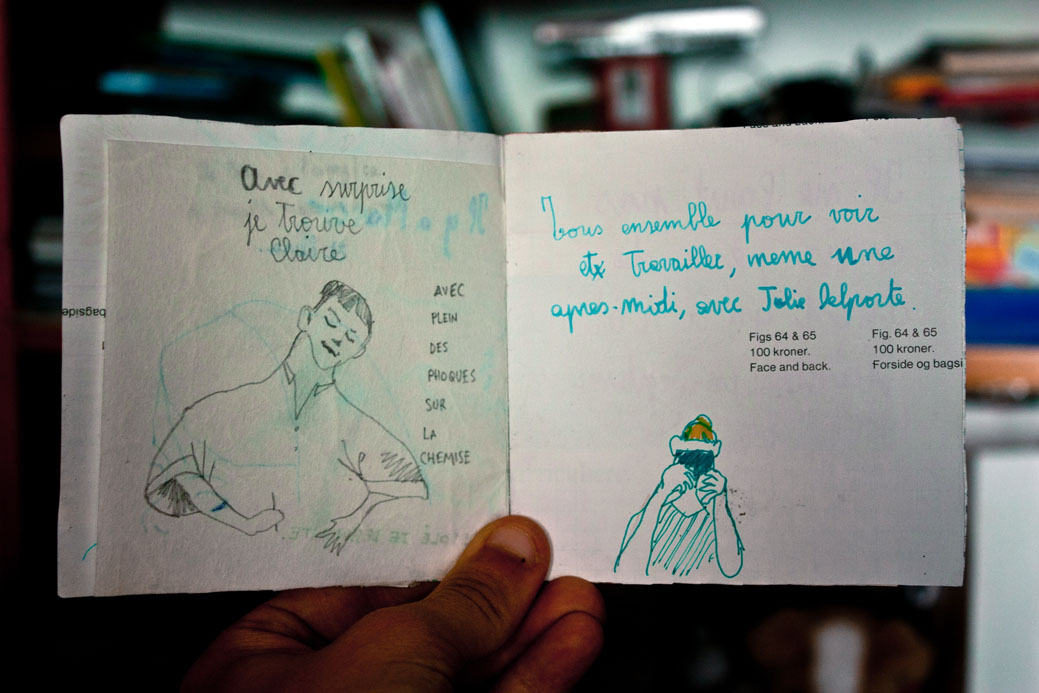 avec surprise
je trouve
Claire
AVEC
PLEIN
DES
PHOQUES
SUR
LA
CHEMISE
bagside
Tous ensemble pour voir
et travailler, meme une
apres-midi, avec Jolie Delporte.
Figs 64 & 65
100 kroner.
Face and back.
Fig. 64 & 65
100 kroner.
Forside og bagsi